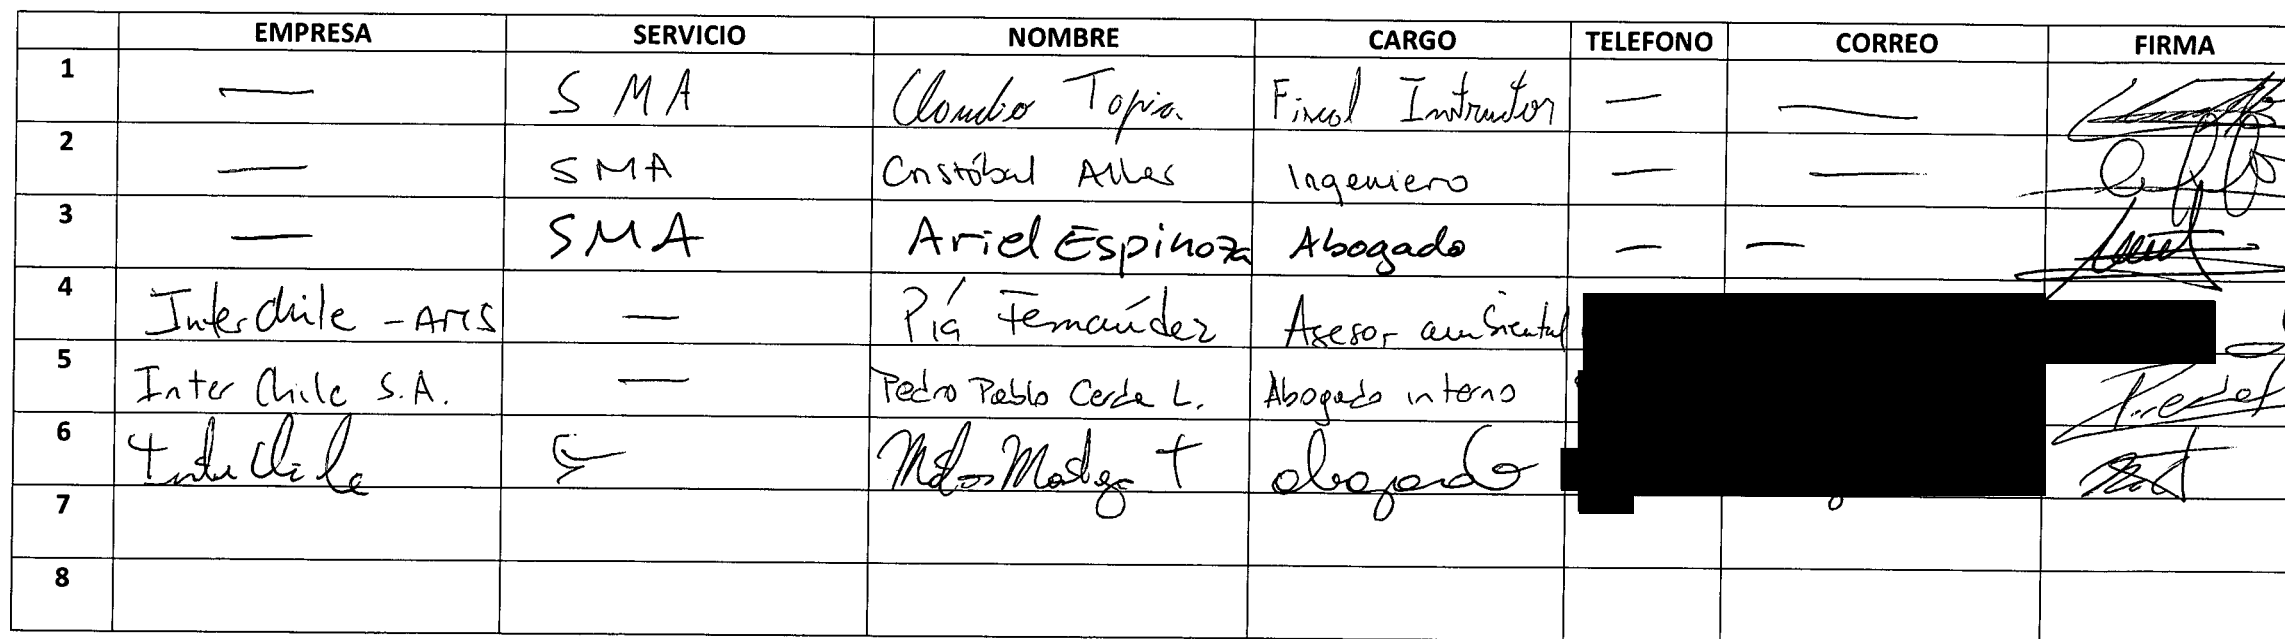 EMPRESA SERVICIO NOMBRE CARGO TELEFONO CORREO FIRMA
1 — SMA Claudio Tapia Fiscal Instructor — —
2 — SMA Cristóbal — Ingeniero — —
3 — SMA Ariel Espinoza Abogado — —
4 InterChile - AMS — Pía Fernández Asesor ambiental
5 Inter Chile S.A. — Pedro Pablo Cerda L. Abogado interno
6 InterChile abogado
7
8